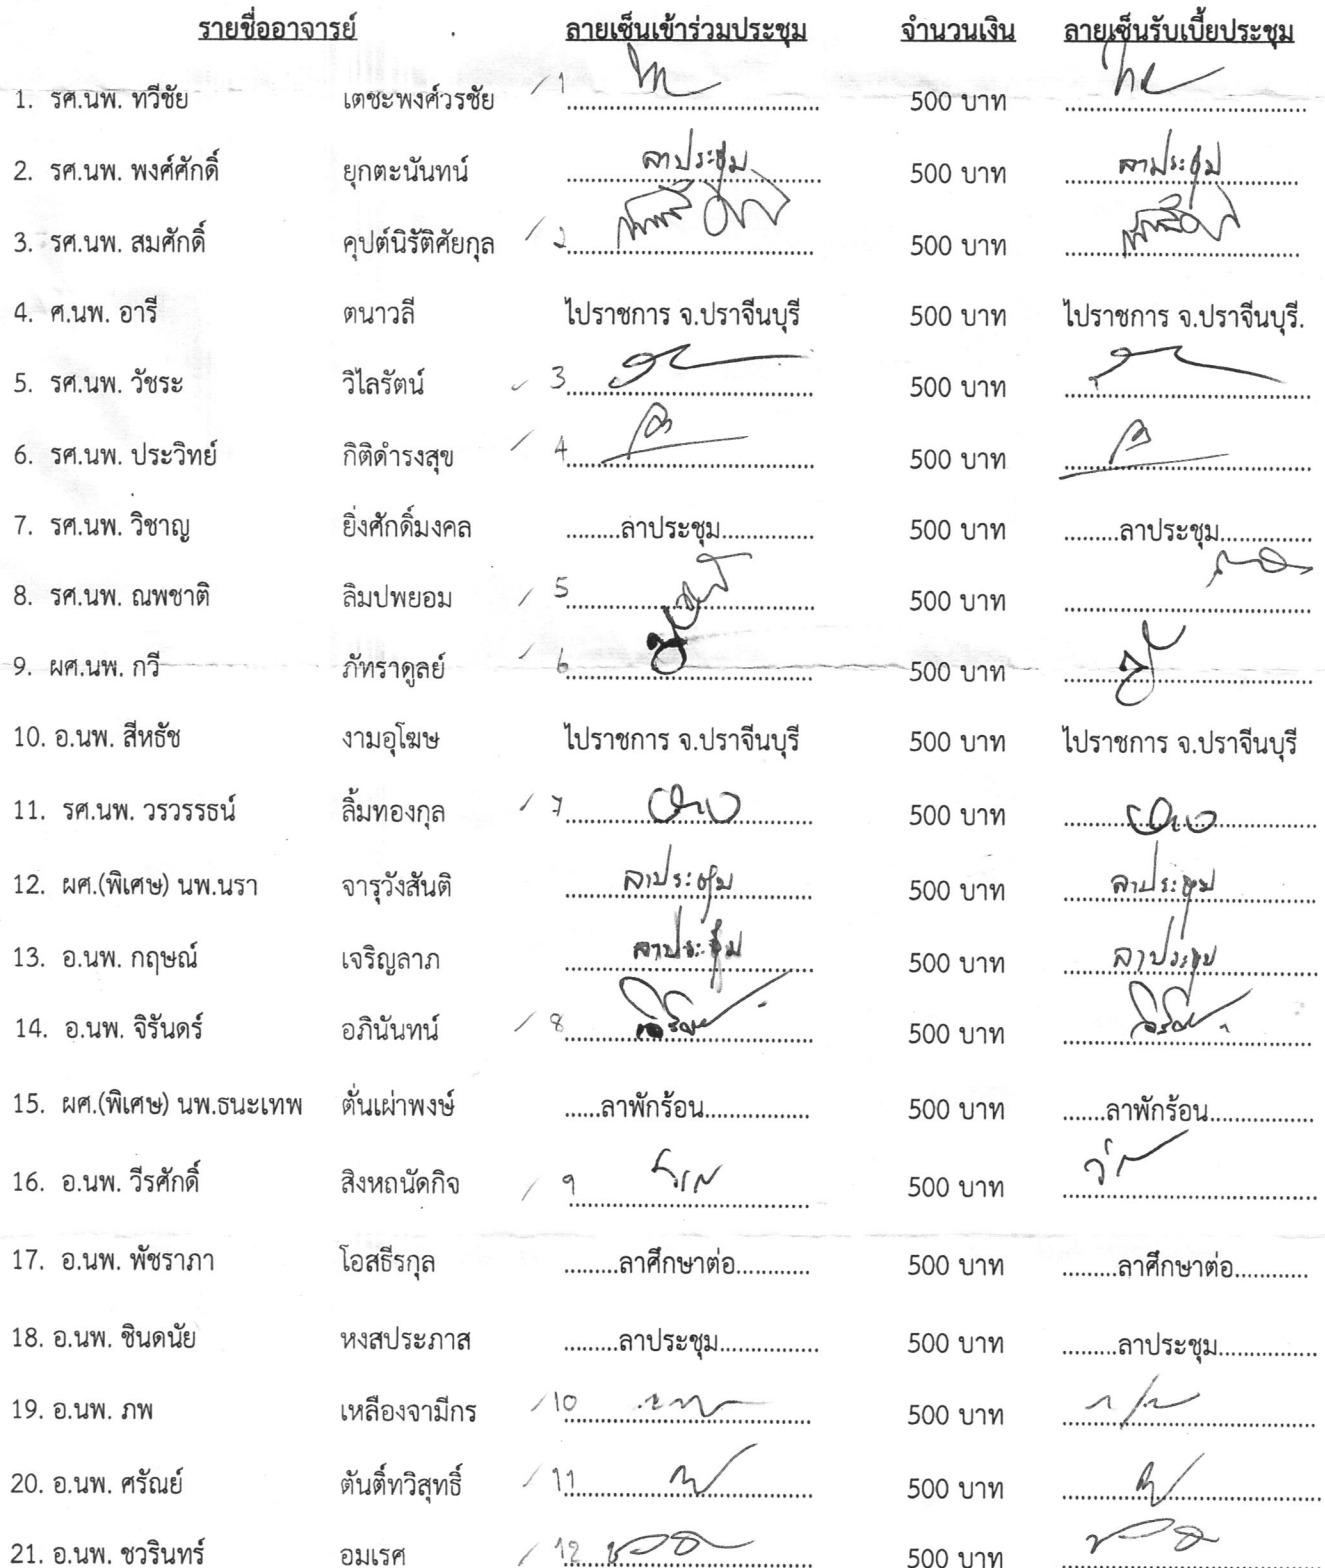 รายชื่ออาจารย์ ลายเซ็นเข้าร่วมประชุม จำนวนเงิน ลายเซ็นรับเบี้ยประชุม
1. รศ.นพ. ทวีชัย เตชะพงศ์วรชัย / 1 500 บาท
2. รศ.นพ. พงศ์ศักดิ์ ยุกตะนันทน์ ลาประชุม 500 บาท ลาประชุม
3. รศ.นพ. สมศักดิ์ คุปต์นิรัติศัยกุล / 2 500 บาท
4. ศ.นพ. อารี ตนาวลี ไปราชการ จ.ปราจีนบุรี 500 บาท ไปราชการ จ.ปราจีนบุรี.
5. รศ.นพ. วัชระ วิไลรัตน์ / 3 500 บาท
6. รศ.นพ. ประวิทย์ กิติดำรงสุข / 4 500 บาท
7. รศ.นพ. วิชาญ ยิ่งศักดิ์มงคล .........ลาประชุม............... 500 บาท .........ลาประชุม...............
8. รศ.นพ. ณพชาติ ลิมปพยอม / 5 500 บาท
9. ผศ.นพ. กวี ภัทราดูลย์ / 6 500 บาท
10. อ.นพ. สีหธัช งามอุโฆษ ไปราชการ จ.ปราจีนบุรี 500 บาท ไปราชการ จ.ปราจีนบุรี
11. รศ.นพ. วรวรรธน์ ลิ้มทองกุล / 7 500 บาท
12. ผศ.(พิเศษ) นพ.นรา จารุวังสันติ ลาประชุม 500 บาท ลาประชุม
13. อ.นพ. กฤษณ์ เจริญลาภ ลาประชุม 500 บาท ลาประชุม
14. อ.นพ. จิรันดร์ อภินันทน์ / 8 500 บาท
15. ผศ.(พิเศษ) นพ.ธนะเทพ ตั่นเผ่าพงษ์ ......ลาพักร้อน................. 500 บาท .......ลาพักร้อน.................
16. อ.นพ. วีรศักดิ์ สิงหถนัดกิจ / 9 500 บาท
17. อ.นพ. พัชราภา โอสธีรกุล .........ลาศึกษาต่อ............ 500 บาท .........ลาศึกษาต่อ............
18. อ.นพ. ชินดนัย หงสประภาส .........ลาประชุม................ 500 บาท .........ลาประชุม................
19. อ.นพ. ภพ เหลืองจามีกร / 10 500 บาท
20. อ.นพ. ศรัณย์ ตันติ์ทวิสุทธิ์ / 11 500 บาท
21. อ.นพ. ชวรินทร์ อมเรศ / 12 500 บาท